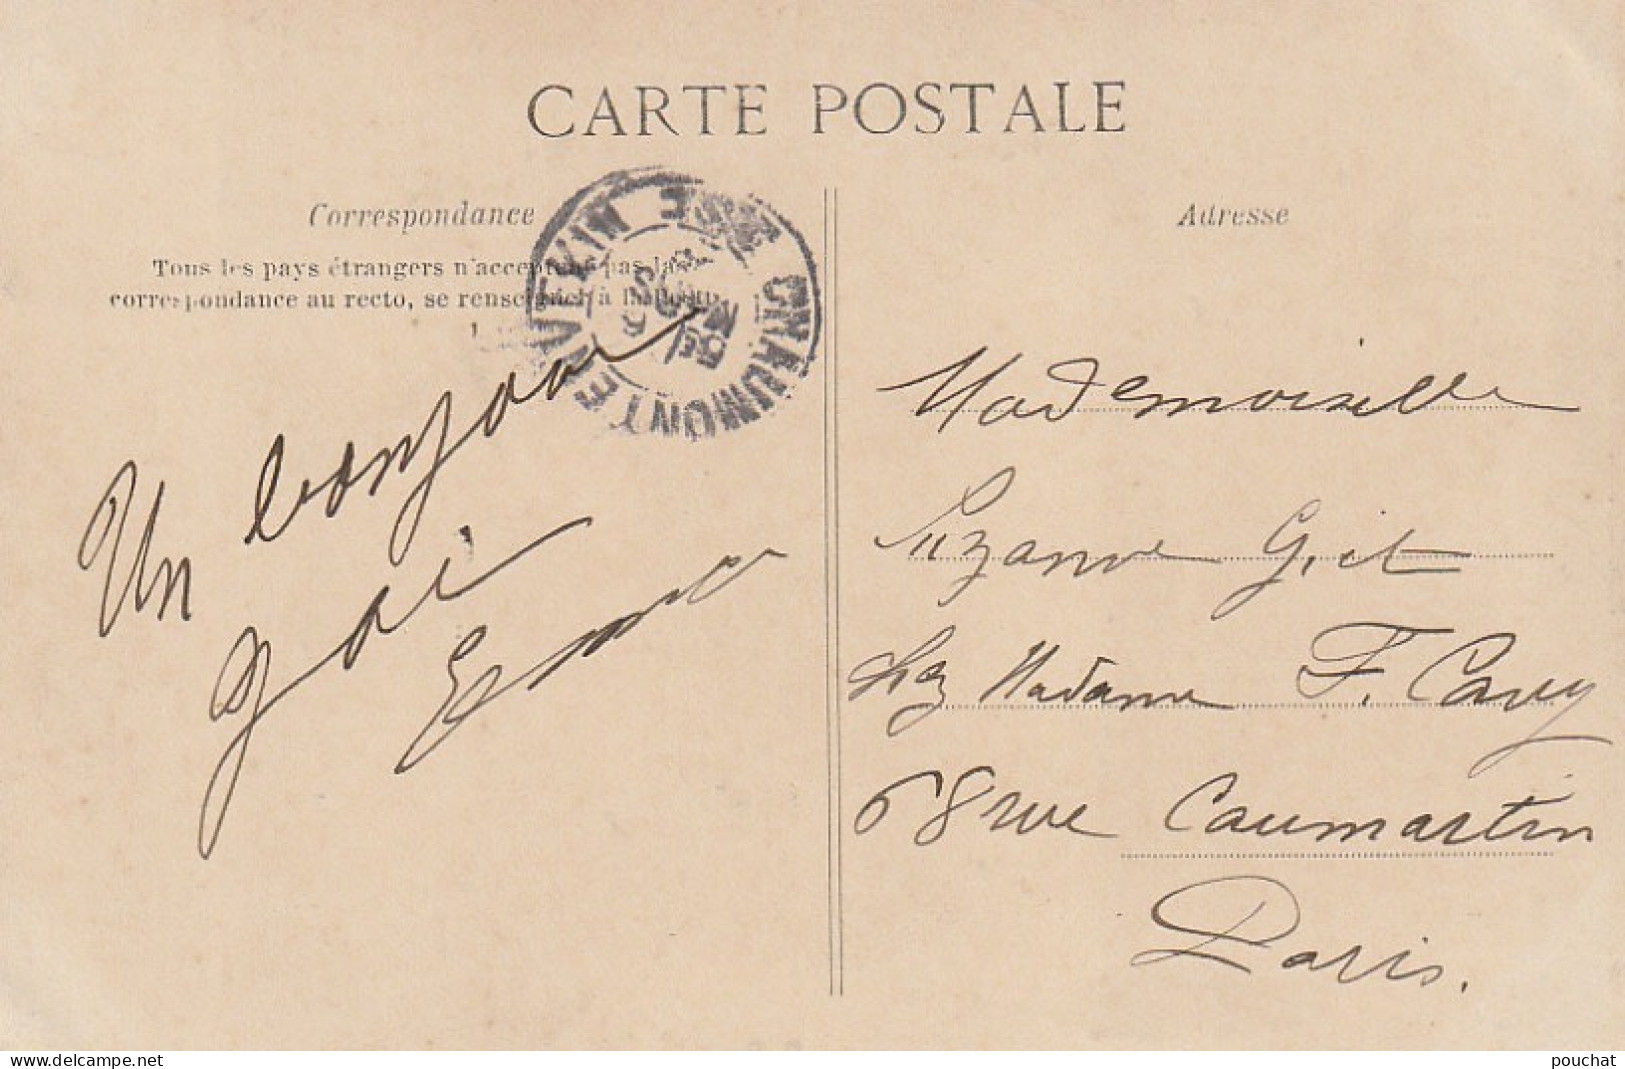 CARTE POSTALE
Correspondance
Tous les pays étrangers n'acceptent pas la
correspondance au recto, se renseigner à la Poste
Un bonjour
gai
Adresse
Mademoiselle
Suzanne Git
chez Madame F. Cavy
68 rue Caumartin
Paris.
CHAUMONT
www.delcampe.net
pouchat